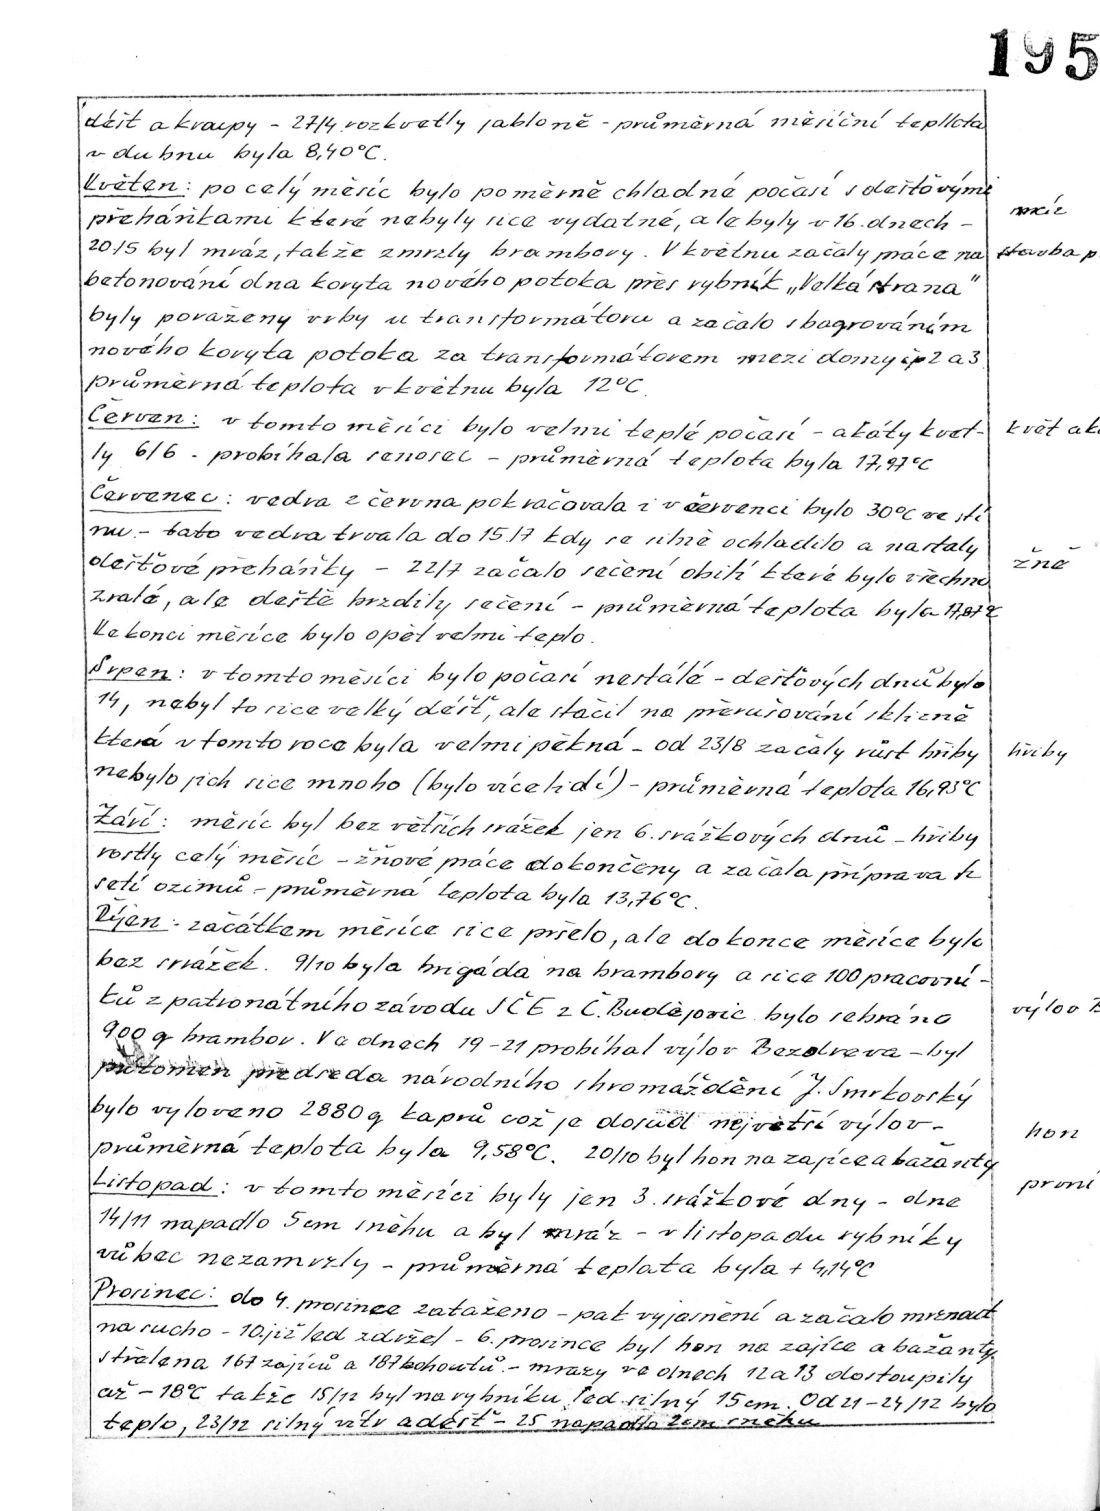 195
déšť a kroupy - 27/4 rozkvetly jabloně - průměrná měsíční tepllota
v dubnu byla 8,40°C.
Květen: po celý měsíc bylo poměrně chladné počasí s dešťovými
přeháňkami které nebyly sice vydatné, ale byly v 16. dnech -
mráz
20/5 byl mráz, takže zmrzly brambory. V květnu začaly práce na
stavba p
betonování dna koryta nového potoka přes rybník „Velká strana"
byly poraženy vrby u transformátoru a začalo s bagrováním
nového koryta potoka za transformátorem mezi domy čp 2 a 3
průměrná teplota v květnu byla 12°C.
Červen: v tomto měsíci bylo velmi teplé počasí - akáty kvet-
květ aká
ly 6/6 - probíhala senoseč - průměrná teplota byla 17,97°C
Červenec: vedra z června pokračovala i v červenci bylo 30°C ve stí
nu - tato vedra trvala do 15/7 kdy se silně ochladilo a nastaly
dešťové přeháňky - 22/7 začalo sečení obilí které bylo všechno
žně
zralé, ale deště brzdily sečení - průměrná teplota byla 17,87°C
Ke konci měsíce bylo opět velmi teplo.
Srpen: v tomto měsíci bylo počasí nestálé - dešťových dnů bylo
14, nebyl to sice velký déšť, ale stačil na přerušování sklizně
která v tomto roce byla velmi pěkná - od 23/8 začaly růst hřiby
hřiby
nebylo jich sice mnoho (bylo více lidí) - průměrná teplota 16,93°C
Září: měsíc byl bez větších srážek jen 6. srážkových dnů - hřiby
rostly celý měsíc - žňové práce dokončeny a začala příprava k
setí ozimů - průměrná teplota byla 13,76°C.
Říjen - začátkem měsíce sice pršelo, ale do konce měsíce bylo
bez srážek. 9/10 byla brigáda na brambory a sice 100 pracovní-
ků z patronátního závodu JČE z Č. Budějovic bylo sebráno
výlov B
900 q brambor. Ve dnech 19-21 probíhal výlov Bezdreva - byl
přítomen předseda národního shromáždění J. Smrkovský
bylo vyloveno 2880 q kaprů což je dosud největší výlov -
hon
průměrná teplota byla 9,58°C. 20/10 byl hon na zajíce a bažanty
první
Listopad: v tomto měsíci byly jen 3. srážkové dny - dne
14/11 napadlo 5cm sněhu a byl mráz - v listopadu rybníky
vůbec nezamrzly - průměrná teplata byla + 4,14°C
Prosinec: do 4. prosince zataženo - pak vyjasnění a začalo mrznout
na sucho - 10. již led zdržel - 6. prosince byl hon na zajíce a bažanty
střelena 167 zajíců a 187 kohoutů. - mrazy ve dnech 12 a 13 dostoupily
až - 18°C takže 15/12 byl na rybníku led silný 15cm. Od 21-24/12 bylo
teplo, 23/12 silný vítr a déšť - 25 napadlo 2cm sněhu